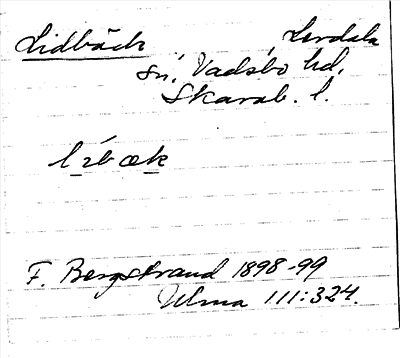 Lidbäck Lerdala
sn, Vadsbo hd,
Skarab. l.
F. Bergstrand 1898-99
Ulma 111:324.